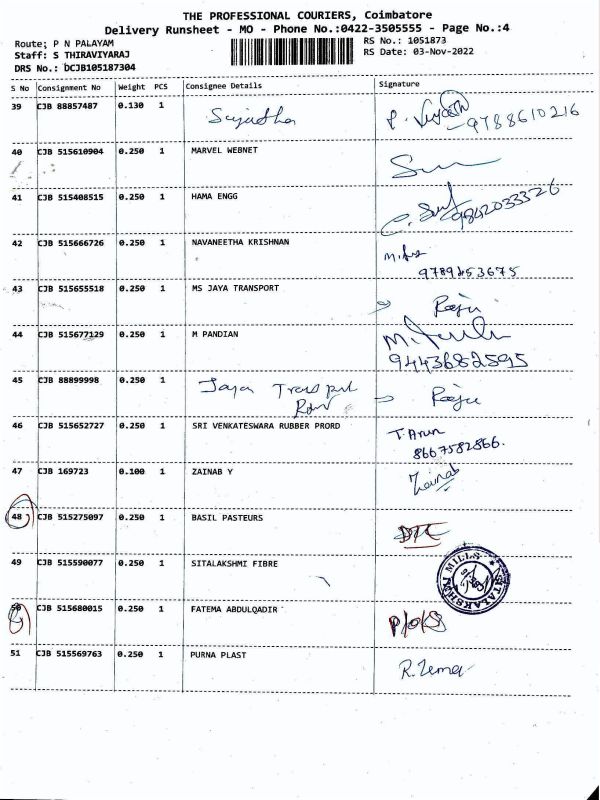 THE PROFESSIONAL COURIERS, Coimbatore
Delivery Runsheet - MO - Phone No.:0422-3505555 - Page No.:4
Route; P N PALAYAM RS No.: 1051873
Staff: S THIRAVIYARAJ RS Date: 03-Nov-2022
DRS No.: DCJB105187304
S No Consignment No Weight PCS Consignee Details Signature
39 CJB 88857487 0.130 1 Sujadha
9788610216
40 CJB 515610904 0.250 1 MARVEL WEBNET
41 CJB 515408515 0.250 1 HAMA ENGG
9842033326
42 CJB 515666726 0.250 1 NAVANEETHA KRISHNAN
9789453675
43 CJB 515655518 0.250 1 MS JAYA TRANSPORT Raju
44 CJB 515677129 0.250 1 M PANDIAN
9443682595
45 CJB 88899998 0.250 1 Jaya Raju
46 CJB 515652727 0.250 1 SRI VENKATESWARA RUBBER PRORD T. Arun
8667582866.
47 CJB 169723 0.100 1 ZAINAB Y Zainab
48 CJB 515275097 0.250 1 BASIL PASTEURS DTC
49 CJB 515590077 0.250 1 SITALAKSHMI FIBRE
SITALAKSHMI MILLS
50 CJB 515680015 0.250 1 FATEMA ABDULQADIR
51 CJB 515569763 0.250 1 PURNA PLAST